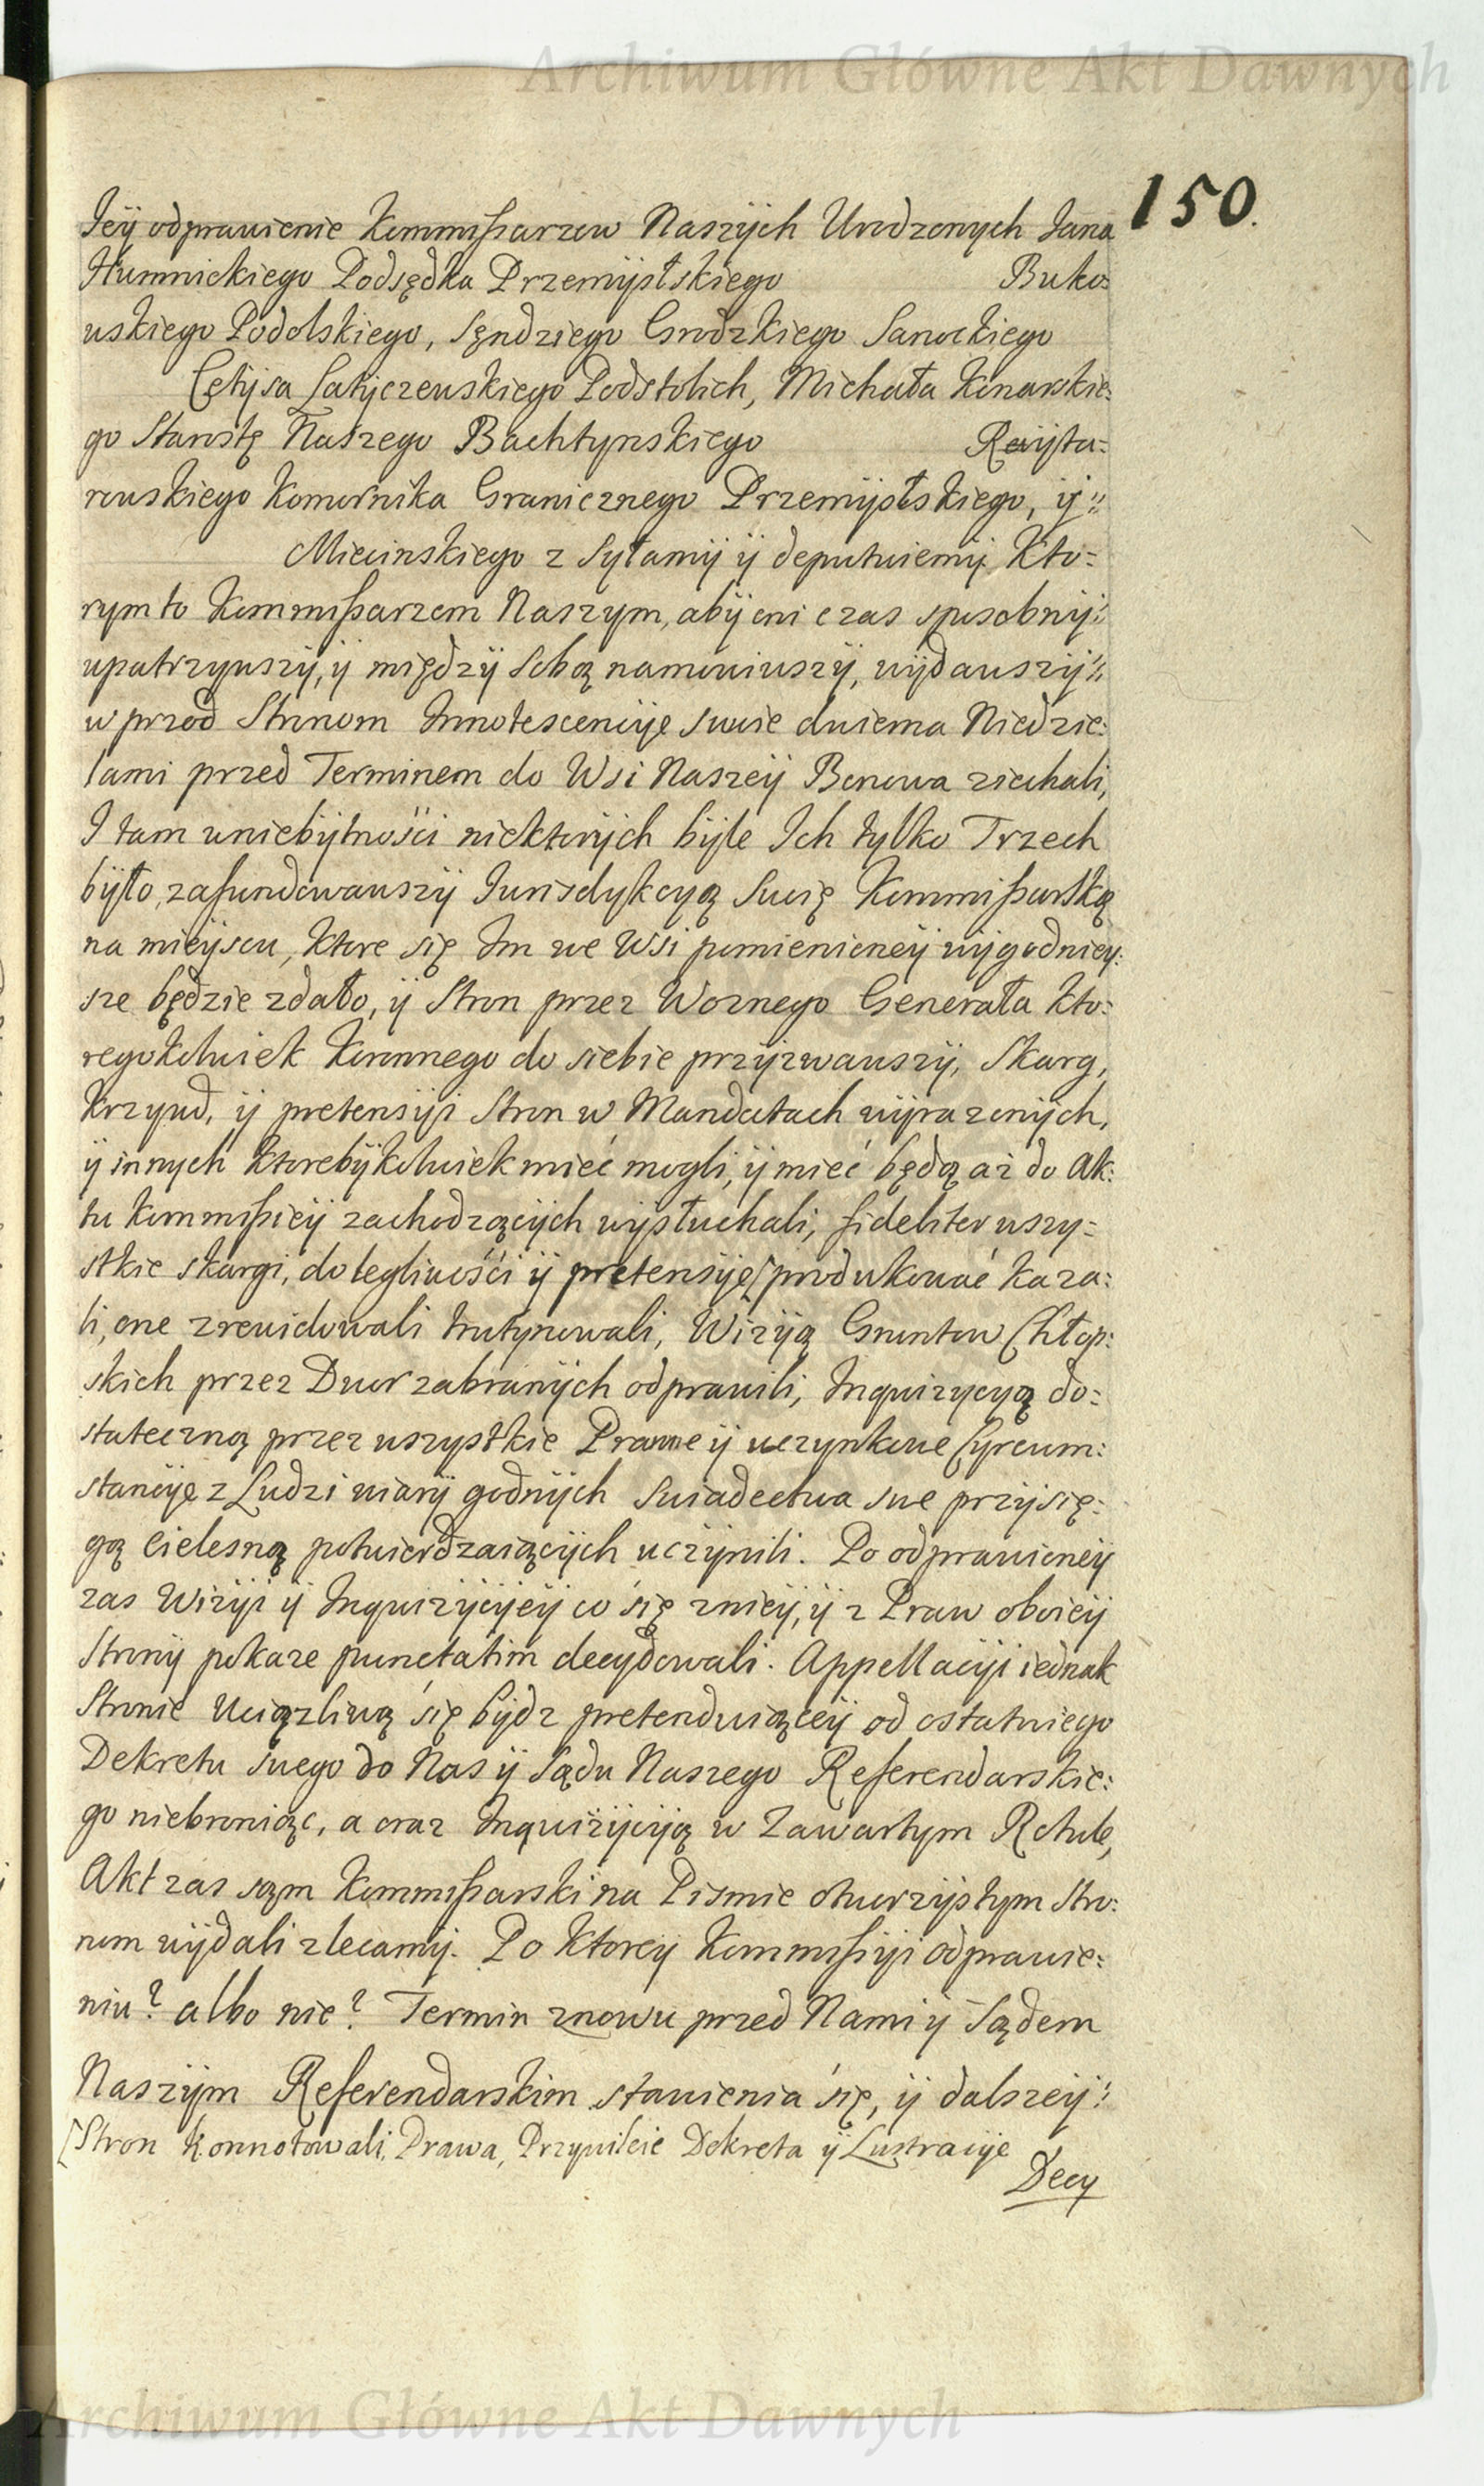 Archiwum Główne Akt Dawnych
150.
Jey odprawienie Kommissarzow Naszych Urodzonych Jana
Humnickiego Podsędka Przemyslskiego Buko:
wskiego Podolskiego, Sęndziego Grodzkiego Sanockiego
Cętysa Latyczewskiego Podstolich, Michała Konarskie:
go Starostę Naszego Bachtynskiego
rowskiego Komornika Granicznego Przemyslskiego, ij
Miecinskiego z Syłamij ij deputuiemij. Kto=
rym to Kommissarzom Naszym, abij oni czas sposobnij
upatrzywszij, ij międzij Sobą namowiwszij, wijdawszij
w przod Stronom Innotescencije swoie dwiema Niedzie:
lami przed Terminem do Wsi Naszeij Bonowa ziechali,
I tam wniebijtności niektorijch bijle Ich tylko Trzech
bijło, zafundowawszij Jurisdykcyą Swoię Kommissarską
na mieijscu, ktore się Im we Wsi pomienioneij wijgodniey:
sze będzie zdało, ij Stron przez Woznego Generała kto:
regokolwiek Koronnego do siebie przijzwawszij, Skarg,
Krzywd, ij pretensiji Stron w Mandatach wijrazonijch,
ij innych ktorebijkolwiek mieć mogli, ij mieć będą aż do Ak:
tu Kommissieij zachodzącijch wijsłuchali, fideliter wszy=
stkie skargi, dolegliwości ij pretensije [produkować kaza:
li, one zrewidowali trutynowali, Wiziją Gruntow Chłop:
skich przez Dwor zabranijch odprawili, Inquizycyą do:
stateczną przez wszystkie Prawne ij uczynkowe Cyrcum:
stancije z Ludzi wiarij godnijch Swiadectwa swe przijsię:
gą cielesną potwierdzaiącijch uczijnili. Po odprawioneij
zas Wiziji ij Inquizijcijeij co się znieij, ij z Praw oboieij
Stronij pokaze punctatim decydowali. Appellaciji iednak
Stronie Uciązliwą się bijdz pretenduiąceij od ostatniego
Dekretu swego do Nas ij Sądu Naszego Referendarskie:
go niebroniąc, a oraz Inquizijciją w Zawartym Rotule,
Akt zas sąm Kommissarski na Pismie otworzijstym Stro:
nom wijdali zlecamij. Po ktoreij Kommissiji odprawie:
niu? albo nie? Termin znowu przed Nami ij Sądem
Naszijm Referendarskim stawienia się, ij dalszeij
[Stron konnotowali, Prawa, Przywileie Dekreta ij Lustracije
Decy
Archiwum Główne Akt Dawnych